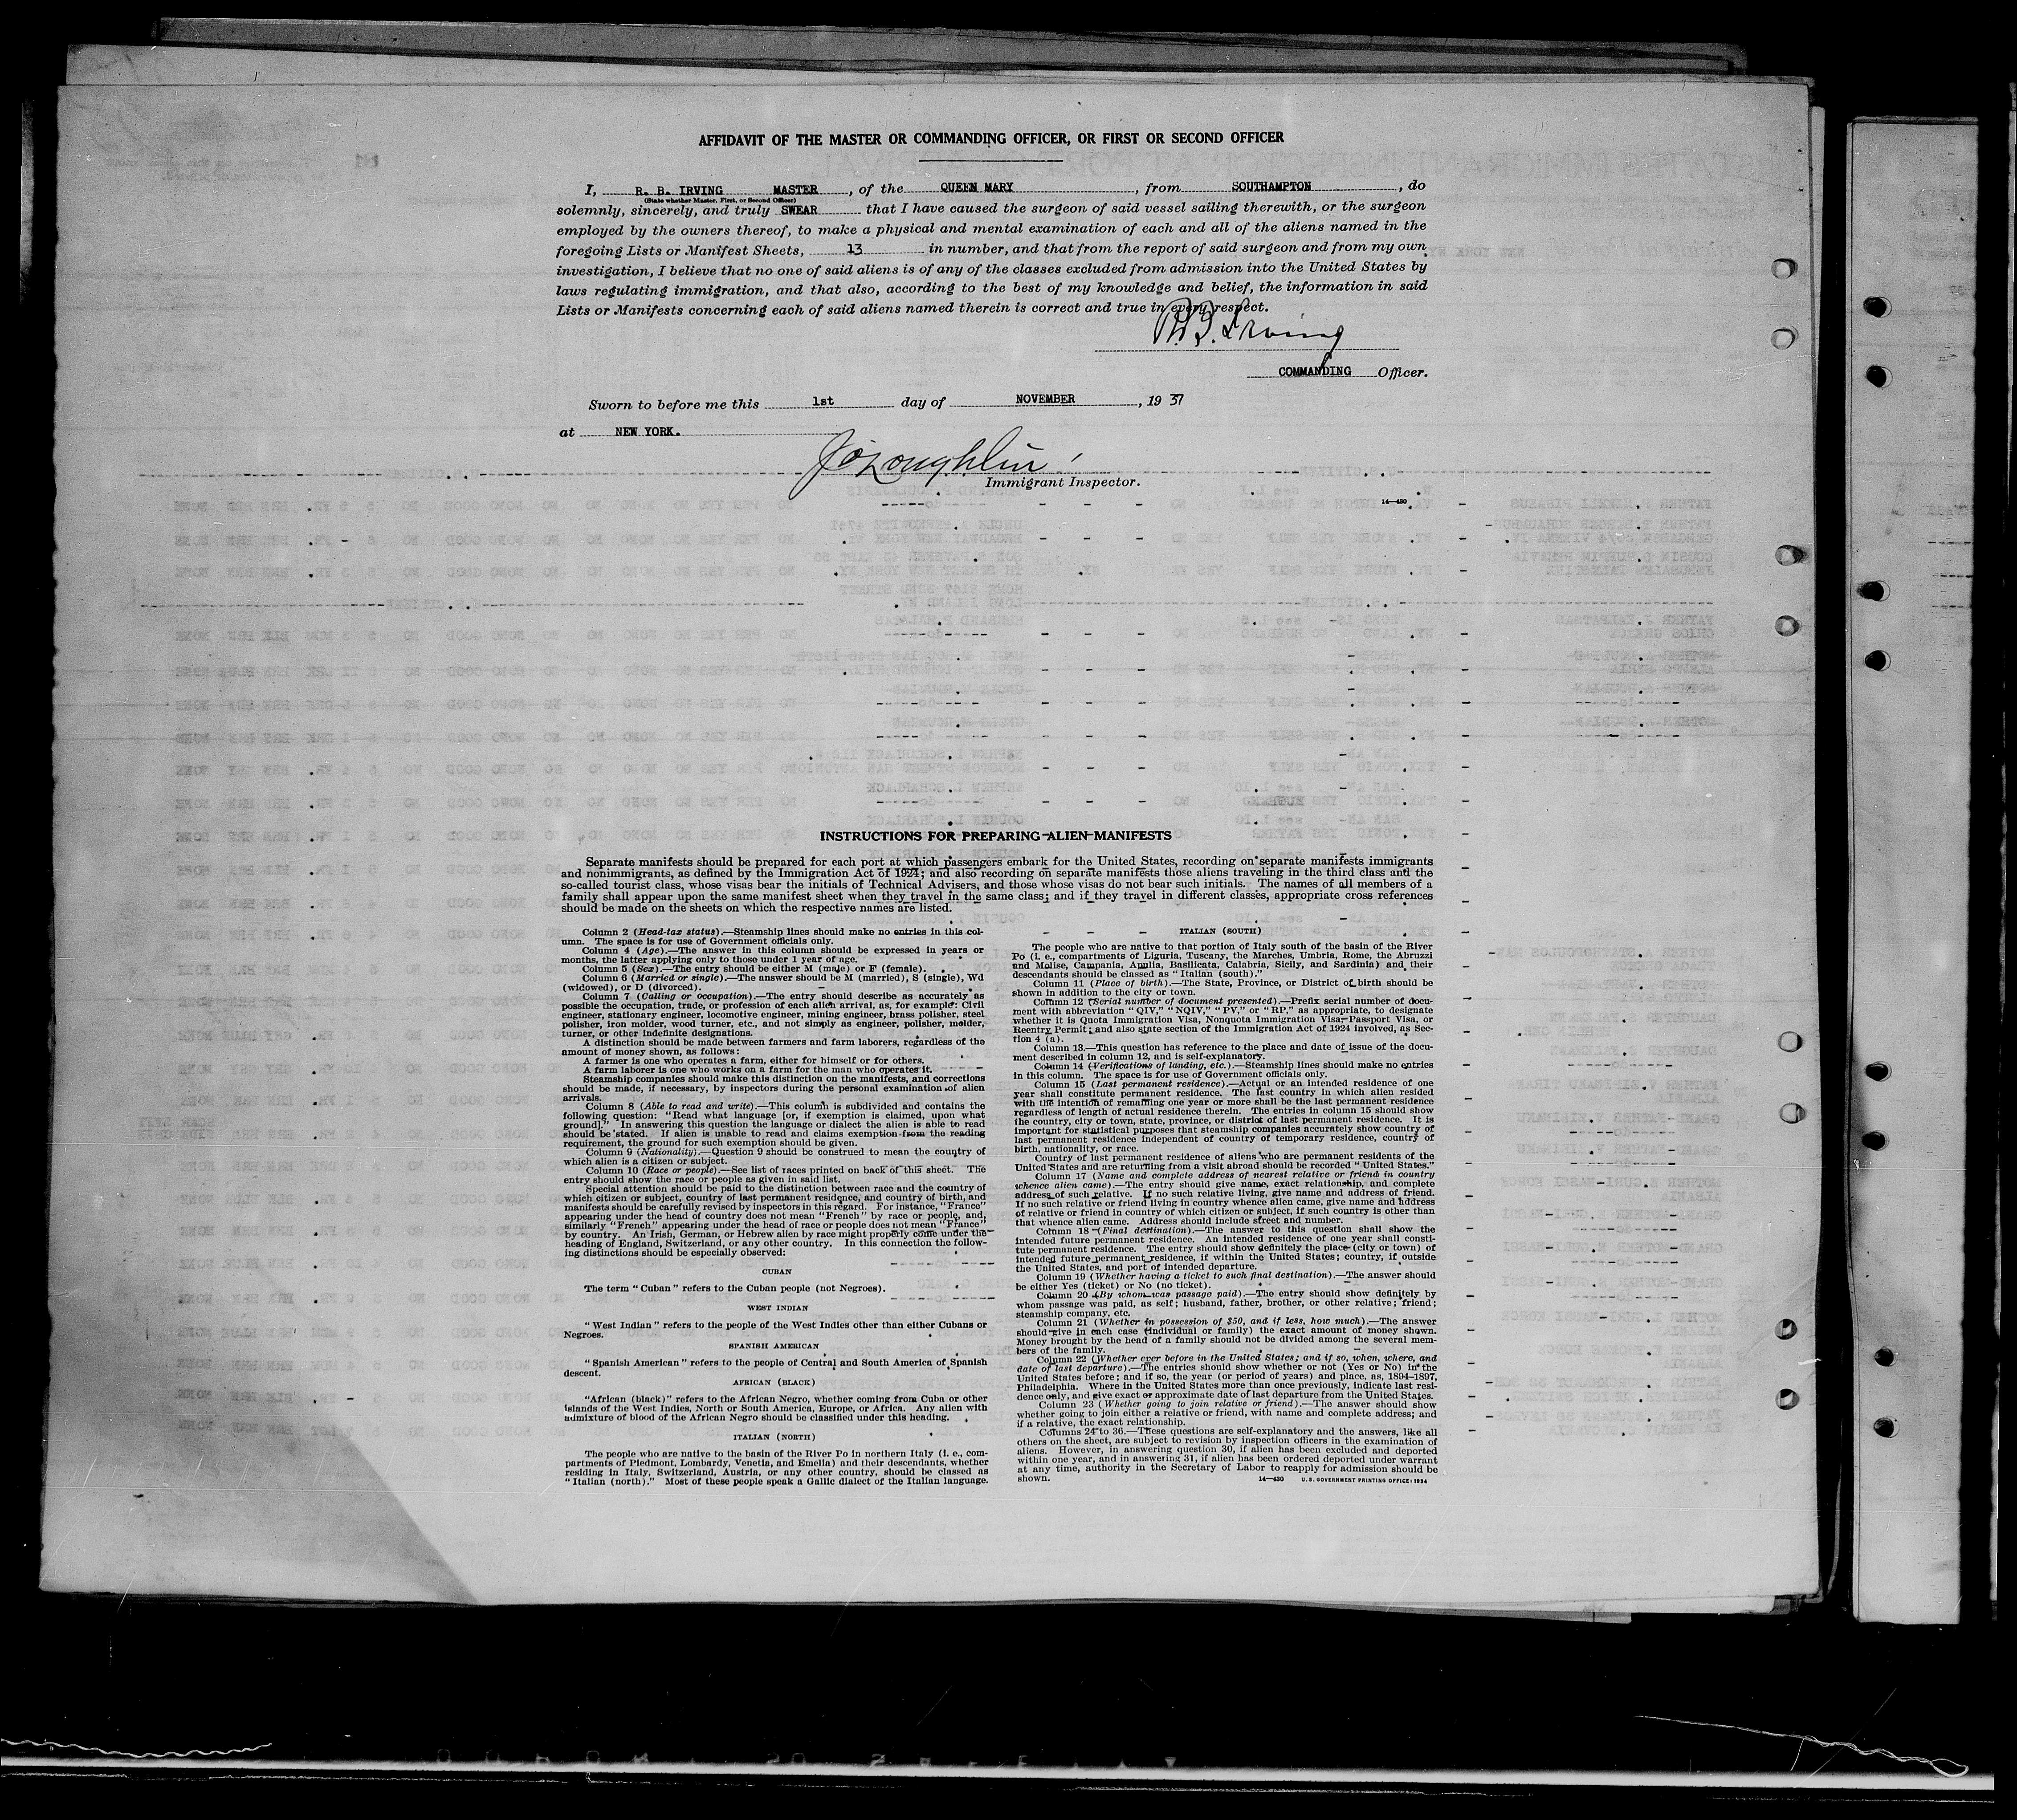 AFFIDAVIT OF THE MASTER OR COMMANDING OFFICER, OR FIRST OR SECOND OFFICER
I, R. B. IRVING MASTER, of the QUEEN MARY, from SOUTHAMPTON, do
(State whether Master, First, or Second Officer)
solemnly, sincerely, and truly SWEAR that I have caused the surgeon of said vessel sailing therewith, or the surgeon
employed by the owners thereof, to make a physical and mental examination of each and all of the aliens named in the
foregoing Lists or Manifest Sheets, 13 in number, and that from the report of said surgeon and from my own
investigation, I believe that no one of said aliens is of any of the classes excluded from admission into the United States by
laws regulating immigration, and that also, according to the best of my knowledge and belief, the information in said
Lists or Manifests concerning each of said aliens named therein is correct and true in every respect.
R.B. Irving
COMMANDING Officer.
Sworn to before me this 1st day of NOVEMBER, 1937
at NEW YORK.
Immigrant Inspector.
14—430
INSTRUCTIONS FOR PREPARING ALIEN MANIFESTS
Separate manifests should be prepared for each port at which passengers embark for the United States, recording on separate manifests immigrants
and nonimmigrants, as defined by the Immigration Act of 1924; and also recording on separate manifests those aliens traveling in the third class and the
so-called tourist class, whose visas bear the initials of Technical Advisers, and those whose visas do not bear such initials. The names of all members of a
family shall appear upon the same manifest sheet when they travel in the same class; and if they travel in different classes, appropriate cross references
should be made on the sheets on which the respective names are listed.
Column 2 (Head-tax status).—Steamship lines should make no entries in this col-
umn. The space is for use of Government officials only.
Column 4 (Age).—The answer in this column should be expressed in years or
months, the latter applying only to those under 1 year of age.
Column 5 (Sex).—The entry should be either M (male) or F (female).
Column 6 (Married or single).—The answer should be M (married), S (single), Wd
(widowed), or D (divorced).
Column 7 (Calling or occupation).—The entry should describe as accurately as
possible the occupation, trade, or profession of each alien arrival, as, for example: Civil
engineer, stationary engineer, locomotive engineer, mining engineer, brass polisher, steel
polisher, iron molder, wood turner, etc., and not simply as engineer, polisher, molder,
turner, or other indefinite designations.
A distinction should be made between farmers and farm laborers, regardless of the
amount of money shown, as follows:
A farmer is one who operates a farm, either for himself or for others.
A farm laborer is one who works on a farm for the man who operates it.
Steamship companies should make this distinction on the manifests, and corrections
should be made, if necessary, by inspectors during the personal examination of alien
arrivals.
Column 8 (Able to read and write).—This column is subdivided and contains the
following question: "Read what language [or, if exemption is claimed, upon what
ground]." In answering this question the language or dialect the alien is able to read
should be stated. If alien is unable to read and claims exemption from the reading
requirement, the ground for such exemption should be given.
Column 9 (Nationality).—Question 9 should be construed to mean the country of
which alien is a citizen or subject.
Column 10 (Race or people).—See list of races printed on back of this sheet. The
entry should show the race or people as given in said list.
Special attention should be paid to the distinction between race and the country of
which citizen or subject, country of last permanent residence, and country of birth, and
manifests should be carefully revised by inspectors in this regard. For instance, "France"
appearing under the head of country does not mean "French" by race or people, and,
similarly "French" appearing under the head of race or people does not mean "France"
by country. An Irish, German, or Hebrew alien by race might properly come under the
heading of England, Switzerland, or any other country. In this connection the follow-
ing distinctions should be especially observed:
CUBAN
The term "Cuban" refers to the Cuban people (not Negroes).
WEST INDIAN
"West Indian" refers to the people of the West Indies other than either Cubans or
Negroes.
SPANISH AMERICAN
"Spanish American" refers to the people of Central and South America of Spanish
descent.
AFRICAN (BLACK)
"African (black)" refers to the African Negro, whether coming from Cuba or other
islands of the West Indies, North or South America, Europe, or Africa. Any alien with
admixture of blood of the African Negro should be classified under this heading.
ITALIAN (NORTH)
The people who are native to the basin of the River Po in northern Italy (i. e., com-
partments of Piedmont, Lombardy, Venetia, and Emelia) and their descendants, whether
residing in Italy, Switzerland, Austria, or any other country, should be classed as
"Italian (north)." Most of these people speak a Gallic dialect of the Italian language.
ITALIAN (SOUTH)
The people who are native to that portion of Italy south of the basin of the River
Po (i. e., compartments of Liguria, Tuscany, the Marches, Umbria, Rome, the Abruzzi
and Molise, Campania, Apulia, Basilicata, Calabria, Sicily, and Sardinia) and their
descendants should be classed as "Italian (south)."
Column 11 (Place of birth).—The State, Province, or District of birth should be
shown in addition to the city or town.
Column 12 (Serial number of document presented).—Prefix serial number of docu-
ment with abbreviation "QIV," "NQIV," "PV," or "RP," as appropriate, to designate
whether it is Quota Immigration Visa, Nonquota Immigration Visa, Passport Visa, or
Reentry Permit; and also state section of the Immigration Act of 1924 involved, as Sec-
tion 4 (a).
Column 13.—This question has reference to the place and date of issue of the docu-
ment described in column 12, and is self-explanatory.
Column 14 (Verifications of landing, etc.).—Steamship lines should make no entries
in this column. The space is for use of Government officials only.
Column 15 (Last permanent residence).—Actual or an intended residence of one
year shall constitute permanent residence. The last country in which alien resided
with the intention of remaining one year or more shall be the last permanent residence
regardless of length of actual residence therein. The entries in column 15 should show
the country, city or town, state, province, or district of last permanent residence. It is
important for statistical purposes that steamship companies accurately show country of
last permanent residence independent of country of temporary residence, country of
birth, nationality, or race.
Country of last permanent residence of aliens who are permanent residents of the
United States and are returning from a visit abroad should be recorded "United States."
Column 17 (Name and complete address of nearest relative or friend in country
whence alien came).—The entry should give name, exact relationship, and complete
address of such relative. If no such relative living, give name and address of friend.
If no such relative or friend living in country whence alien came, give name and address
of relative or friend in country of which citizen or subject, if such country is other than
that whence alien came. Address should include street and number.
Column 18 (Final destination).—The answer to this question shall show the
intended future permanent residence. An intended residence of one year shall consti-
tute permanent residence. The entry should show definitely the place (city or town) of
intended future permanent residence, if within the United States; country, if outside
the United States, and port of intended departure.
Column 19 (Whether having a ticket to such final destination).—The answer should
be either Yes (ticket) or No (no ticket).
Column 20 (By whom was passage paid).—The entry should show definitely by
whom passage was paid, as self; husband, father, brother, or other relative; friend;
steamship company, etc.
Column 21 (Whether in possession of $50, and if less, how much).—The answer
should give in each case (individual or family) the exact amount of money shown.
Money brought by the head of a family should not be divided among the several mem-
bers of the family.
Column 22 (Whether ever before in the United States; and if so, when, where, and
date of last departure).—The entries should show whether or not (Yes or No) in the
United States before; and if so, the year (or period of years) and place, as, 1894–1897,
Philadelphia. Where in the United States more than once previously, indicate last resi-
dence only, and give exact or approximate date of last departure from the United States.
Column 23 (Whether going to join relative or friend).—The answer should show
whether going to join either a relative or friend, with name and complete address; and
if a relative, the exact relationship.
Columns 24 to 36.—These questions are self-explanatory and the answers, like all
others on the sheet, are subject to revision by inspection officers in the examination of
aliens. However, in answering question 30, if alien has been excluded and deported
within one year, and in answering 31, if alien has been ordered deported under warrant
at any time, authority in the Secretary of Labor to reapply for admission should be
shown.
14—430 U. S. GOVERNMENT PRINTING OFFICE: 1934